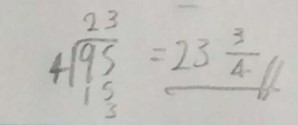 23
4)95 = 23 3/4
15
3